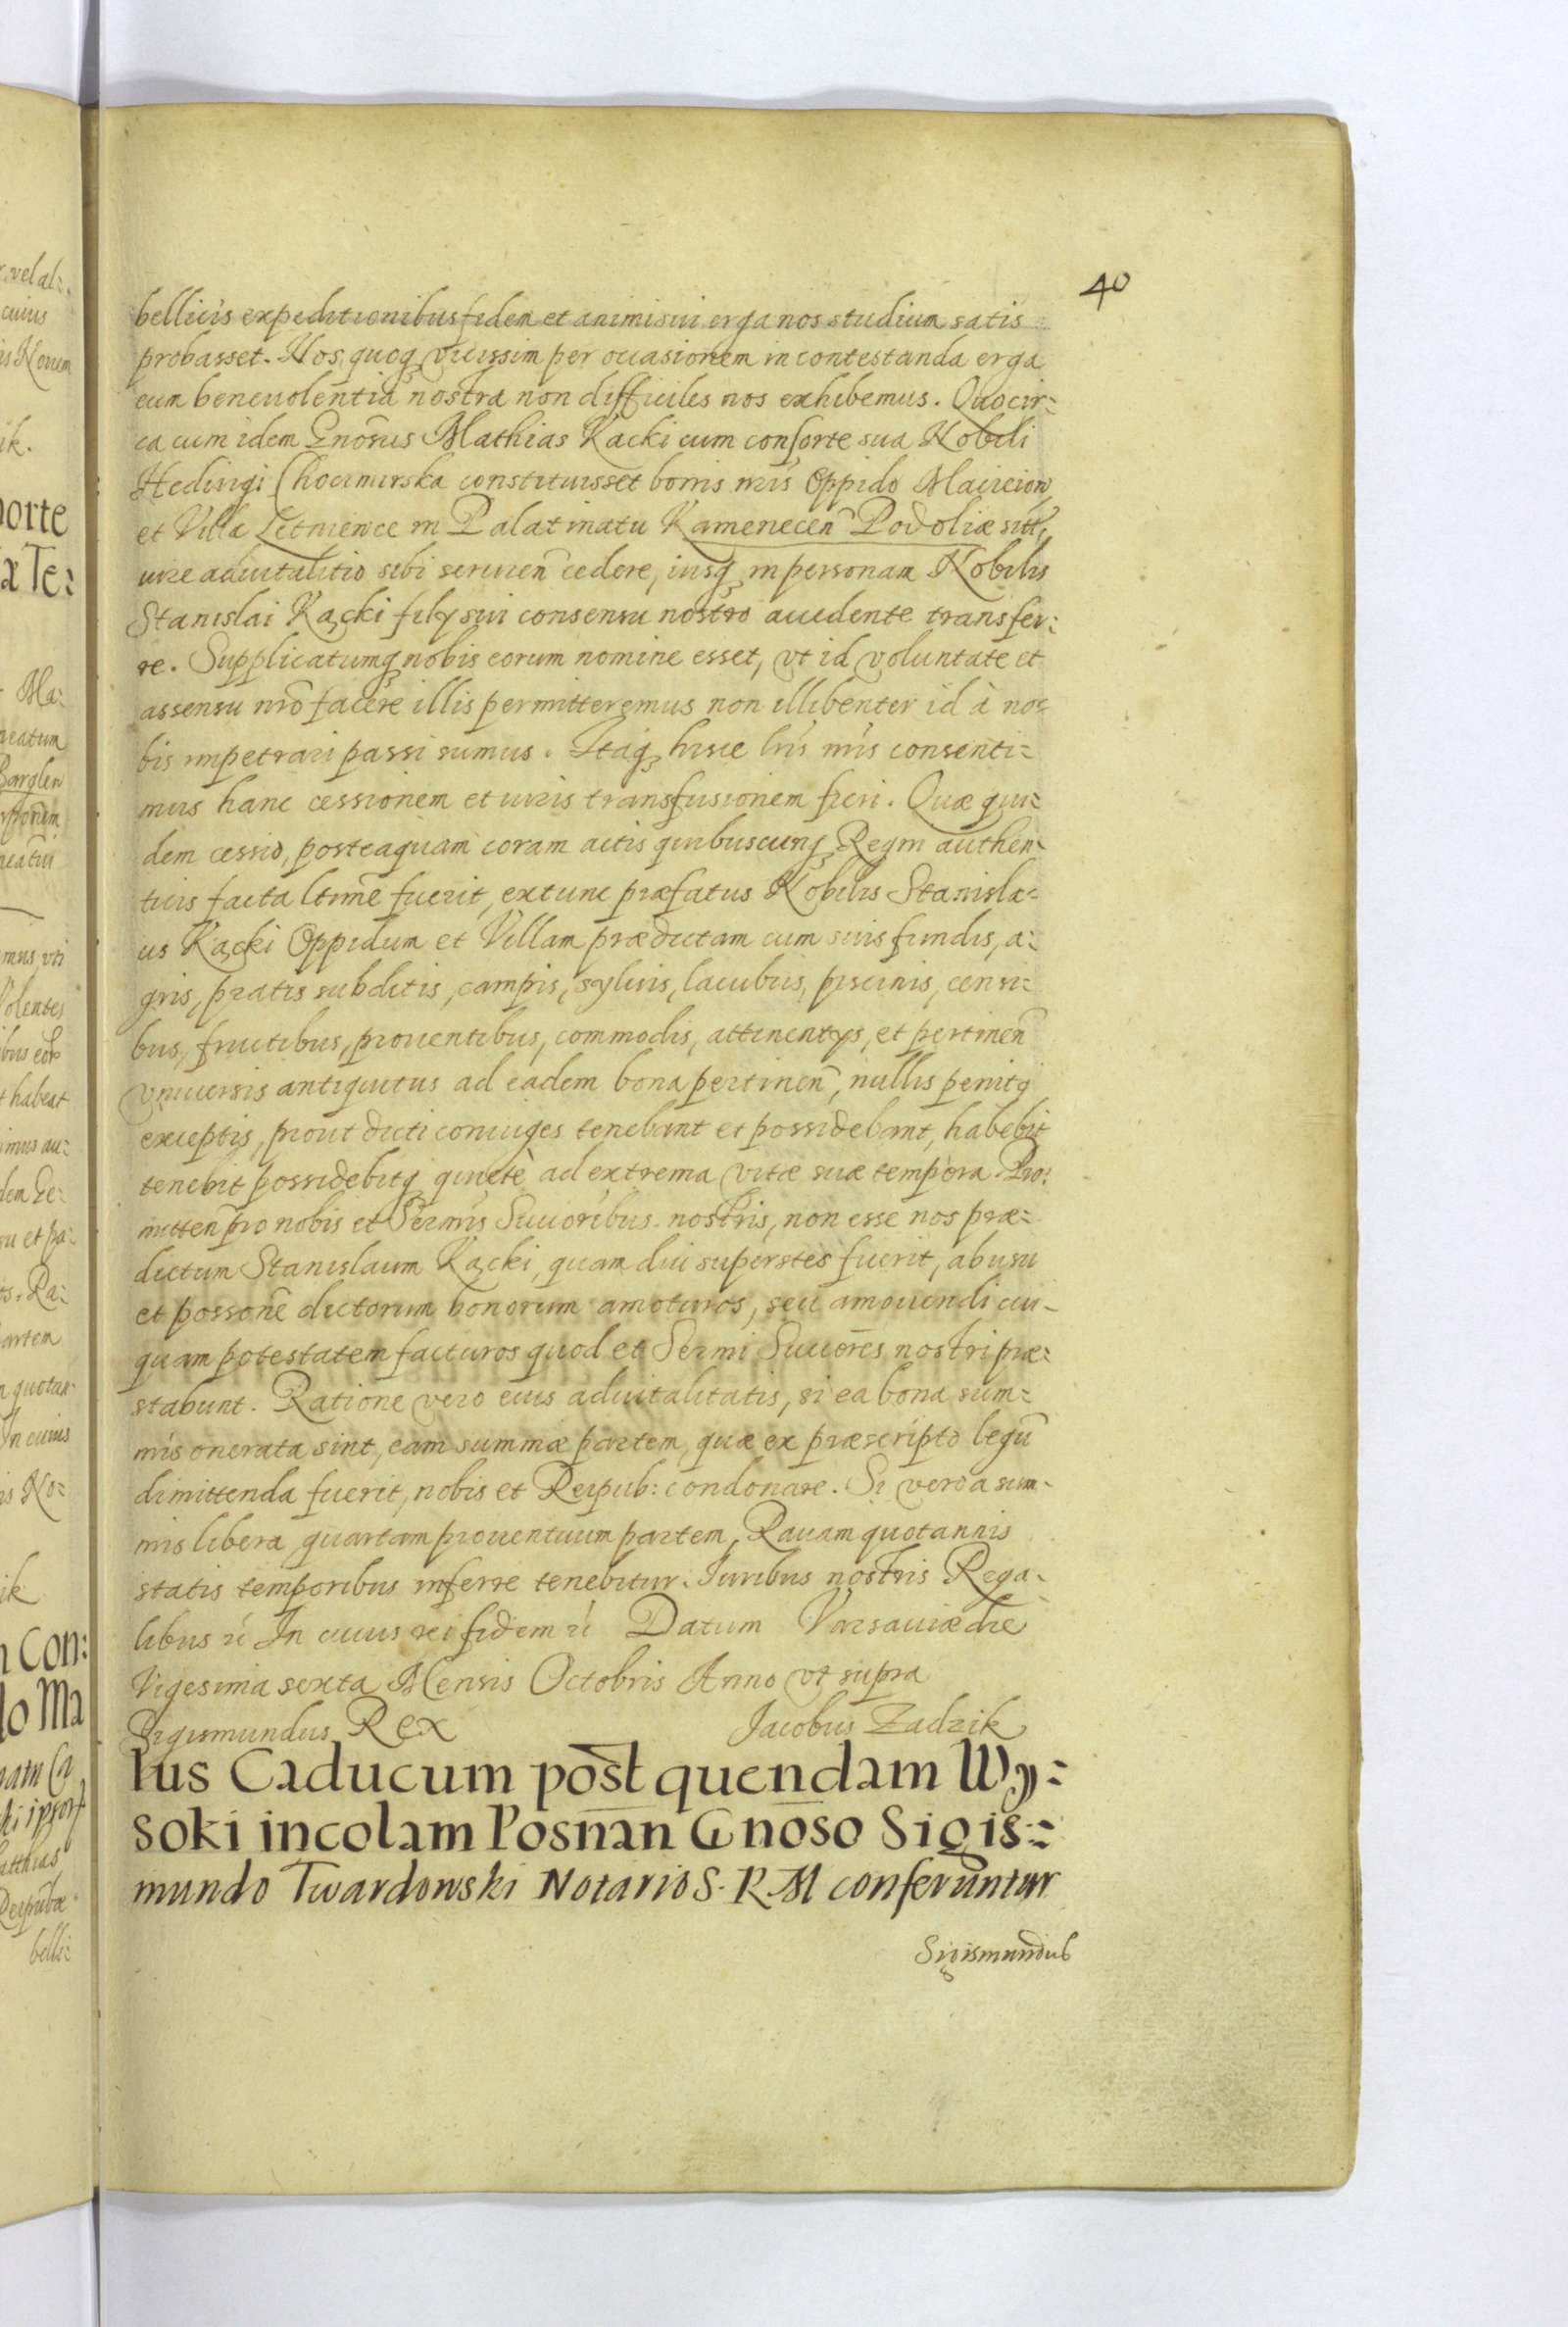 40
bellicis expeditionibus fidem et animi sui erga nos studium satis
probasset. Nos quoq vicissim per occasionem in contestanda erga
eum beneuolentia nostra non difficiles nos exhibemus. Quocir=
ca cum idem Gnosus Mathias Kacki cum consorte sua Nobili
Hedivigi Chocimirska constituisset bonis nris Oppido Maiicion
et Villa Letniewce in Palatinatu Kamenecen Podoliæ sitt,
iure aduitalitio sibi seruien cedere, iusq in personam Nobilis
Stanislai Kącki filÿ sui consensu nostro accedente transfer:
re. Supplicatumq nobis eorum nomine esset, vt id voluntate et
assensu nro facere illis permitteremus non illibenter id à no=
bis impetrari passi sumus. Itaq hisce lris nris consenti=
mus hanc cessionem et iuris transfusionem fieri. Quæ qui=
dem cessio, posteaquam coram actis quibuscunq Regni authen=
ticis facta ltime fuerit, extunc præfatus Nobilis Stanisla=
us Kącki Oppidum et Villam prædictam cum suis fundis, a:
gris, pratis subditis, campis, syluis, lacubus, piscinis, censi=
bus, fructibus, prouentibus, commodis, attinentÿs, et pertinen
vniuersis antiquitus ad eadem bona pertinen, nullis penitq
exceptis, prout dicti coniuges tenebant et possidebant, habebit
tenebit possidebitq quietè ad extrema vitæ suæ tempora. Pro:
mitten pro nobis et Sermis Succoribus nostris, non esse nos præ=
dictum Stanislaum Kącki, quam diu superstes fuerit, ab usu
et possone dictorum bonorum amoturos, seu amouendi cui=
quam potestatem facturos quod et Sermi Succores nostri præ=
stabunt. Ratione vero eius aduitalitatis, si ea bona sum=
mis onerata sint, eam summæ partem, quæ ex præscripto legu
dimittenda fuerit, nobis et Reipub: condonare. Si vero a sum=
mis libera quartam prouentuum partem, Rauam quotannis
statis temporibus inferre tenebitur. Iuribus nostris Rega=
libus ić In cuius rei fidem ić Datum Varsauiæ die
Vigesima sexta Mensis Octobris Anno vt supra
Sigismundus Rex Jacobus Zadzik
Ius Caducum post quendam Wy:
soki incolam Posnan Gnoso Sigis:=
mundo Twardowski Notario S. R. M conferuntur
Sigismundus